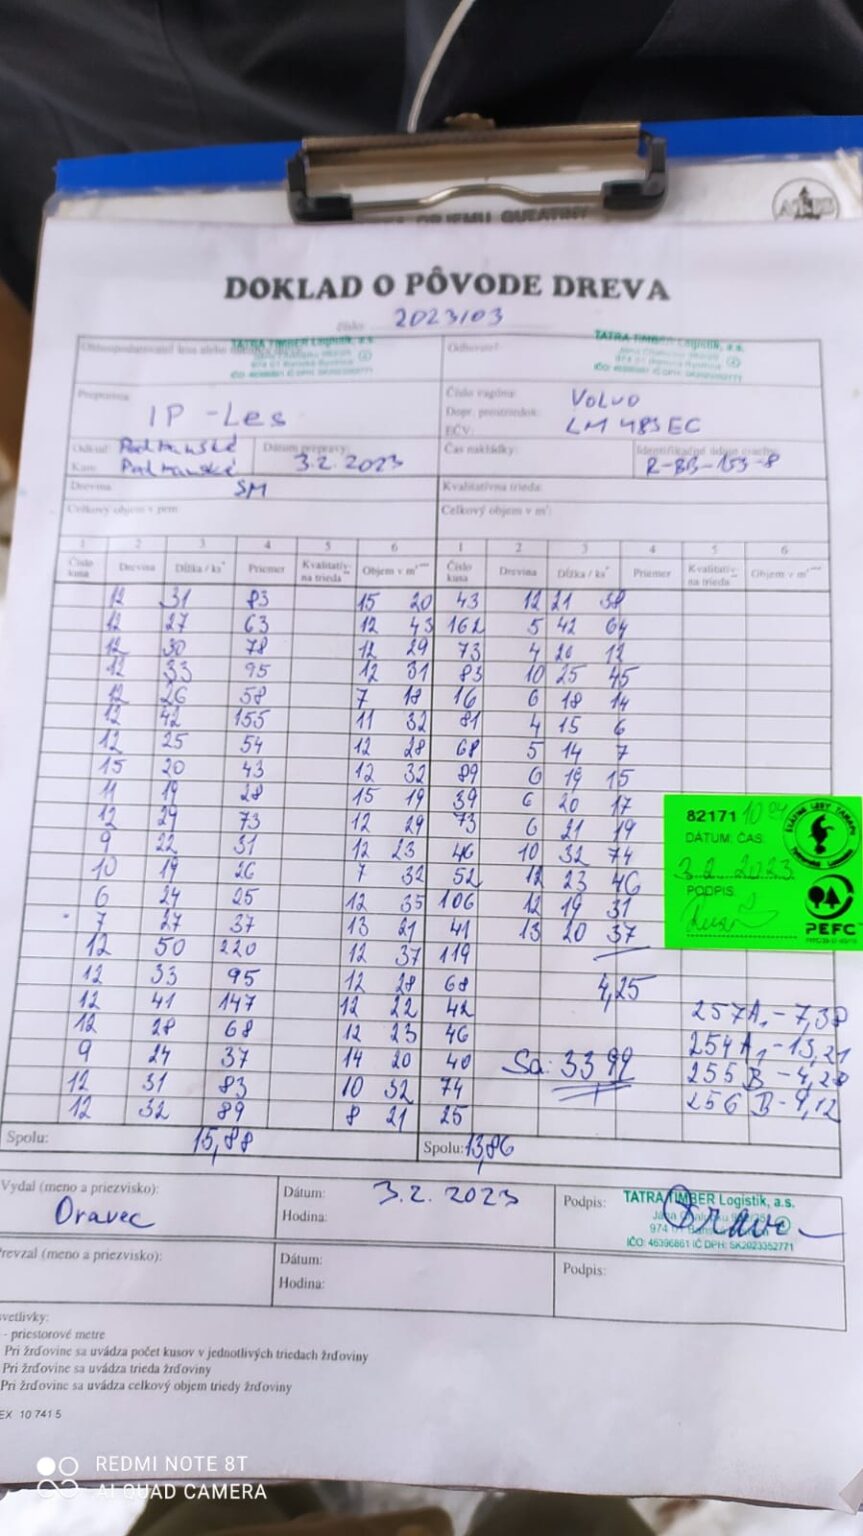 DOKLAD O PÔVODE DREVA
číslo: 2023/03
TATRA TIMBER Logistik, a.s.
TATRA TIMBER Logistik, a.s.
Odberateľ:
Prepravca: IP - Les
Číslo vagóna: VOLVO
Dopr. prostriedok:
EČV: LM 483EC
Odkiaľ: Podtanské
Kam: Podtanské
Dátum prepravy: 3.2.2023
Čas nakládky:
Identifikačné údaje R-BB-153-8
Drevina SM
Kvalitatívna trieda:
Celkový objem v prm:
Celkový objem v m³:
1 2 3 4 5 6 1 2 3 4 5 6
Číslo kusa Drevina Dĺžka / ks* Priemer Kvalitatív- na trieda Objem v m Číslo kusa Drevina Dĺžka / ks* Priemer Kvalitatív- na trieda Objem v m
12 31 83 15 20 43 12 21 38
12 27 63 12 43 162 5 42 64
12 30 78 12 29 73 4 26 12
12 33 95 12 31 83 10 25 45
12 26 58 7 18 16 6 18 14
12 42 155 11 32 81 4 15 6
12 25 54 12 28 68 5 14 7
15 20 43 12 32 89 6 19 15
11 19 28 15 19 39 6 20 17
12 29 73 12 29 73 6 21 19
9 22 31 12 23 46 10 32 74
10 19 26 7 32 52 12 23 46
6 24 25 12 35 106 12 19 31
7 27 37 13 21 41 13 20 37
12 50 220 12 37 119
12 33 95 12 28 68 4,25
12 41 147 12 22 42 257A1 - 7,38
12 28 68 12 23 46 254A1 - 13,21
9 24 37 14 20 40 Sa: 33 99 255 B - 4,28
12 31 83 10 32 74 256 B - 9,12
12 32 89 8 21 25
82171
DÁTUM, ČAS:
3.2.2023
PODPIS:
PEFC
Spolu: 15,88
Spolu: 13,86
Vydal (meno a priezvisko):
Oravec
Dátum: 3.2.2023
Hodina:
Podpis:
TATRA TIMBER Logistik, a.s.
IČO: 46396861 IČ DPH: SK2023352771
Prevzal (meno a priezvisko):
Dátum:
Hodina:
Podpis:
svetlivky:
- priestorové metre
Pri žrďovine sa uvádza počet kusov v jednotlivých triedach žrďoviny
Pri žrďovine sa uvádza trieda žrďoviny
Pri žrďovine sa uvádza celkový objem triedy žrďoviny
EX 10 741 5
REDMI NOTE 8T
AI QUAD CAMERA